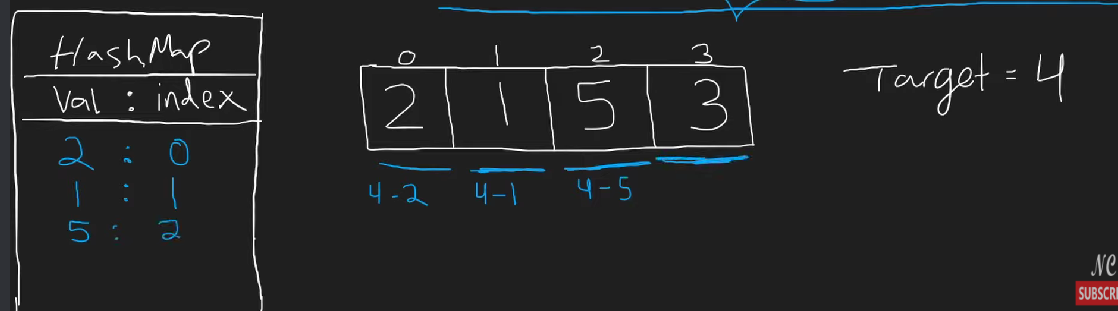 HashMap
Val : index
2 : 0
1 : 1
5 : 2
0 1 2 3
2 1 5 3
4-2 4-1 4-5
Target = 4
NC
SUBSCRI